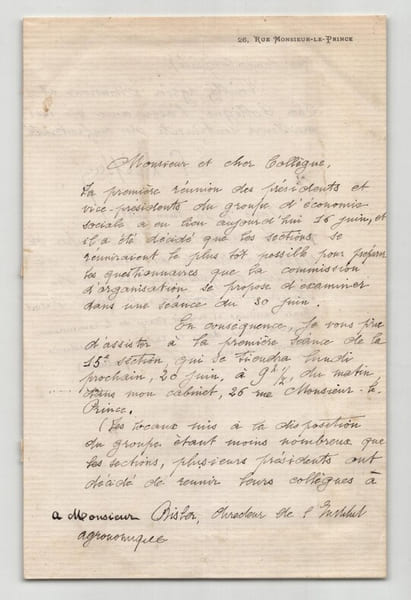 26, Rue Monsieur-le-Prince
Monsieur et cher Collègue,
La première réunion des présidents et
vice-présidents du groupe d'économie
sociale a eu lieu aujourd'hui 16 juin, et
il a été décidé que les sections se
réuniraient le plus tôt possible pour préparer
les questionnaires que la commission
d'organisation se propose d'examiner
dans une séance du 30 juin.
En conséquence, je vous prie
d'assister à la première séance de la
15e section, qui se tiendra lundi
prochain, 20 juin, à 9h 1/2, du matin
dans mon cabinet, 26 rue Monsieur-le-
Prince.
(Les locaux mis à la disposition
du groupe étant moins nombreux que
les sections, plusieurs présidents ont
décidé de reunir leurs collègues à
a Monsieur directeur de l'Institut
agronomique